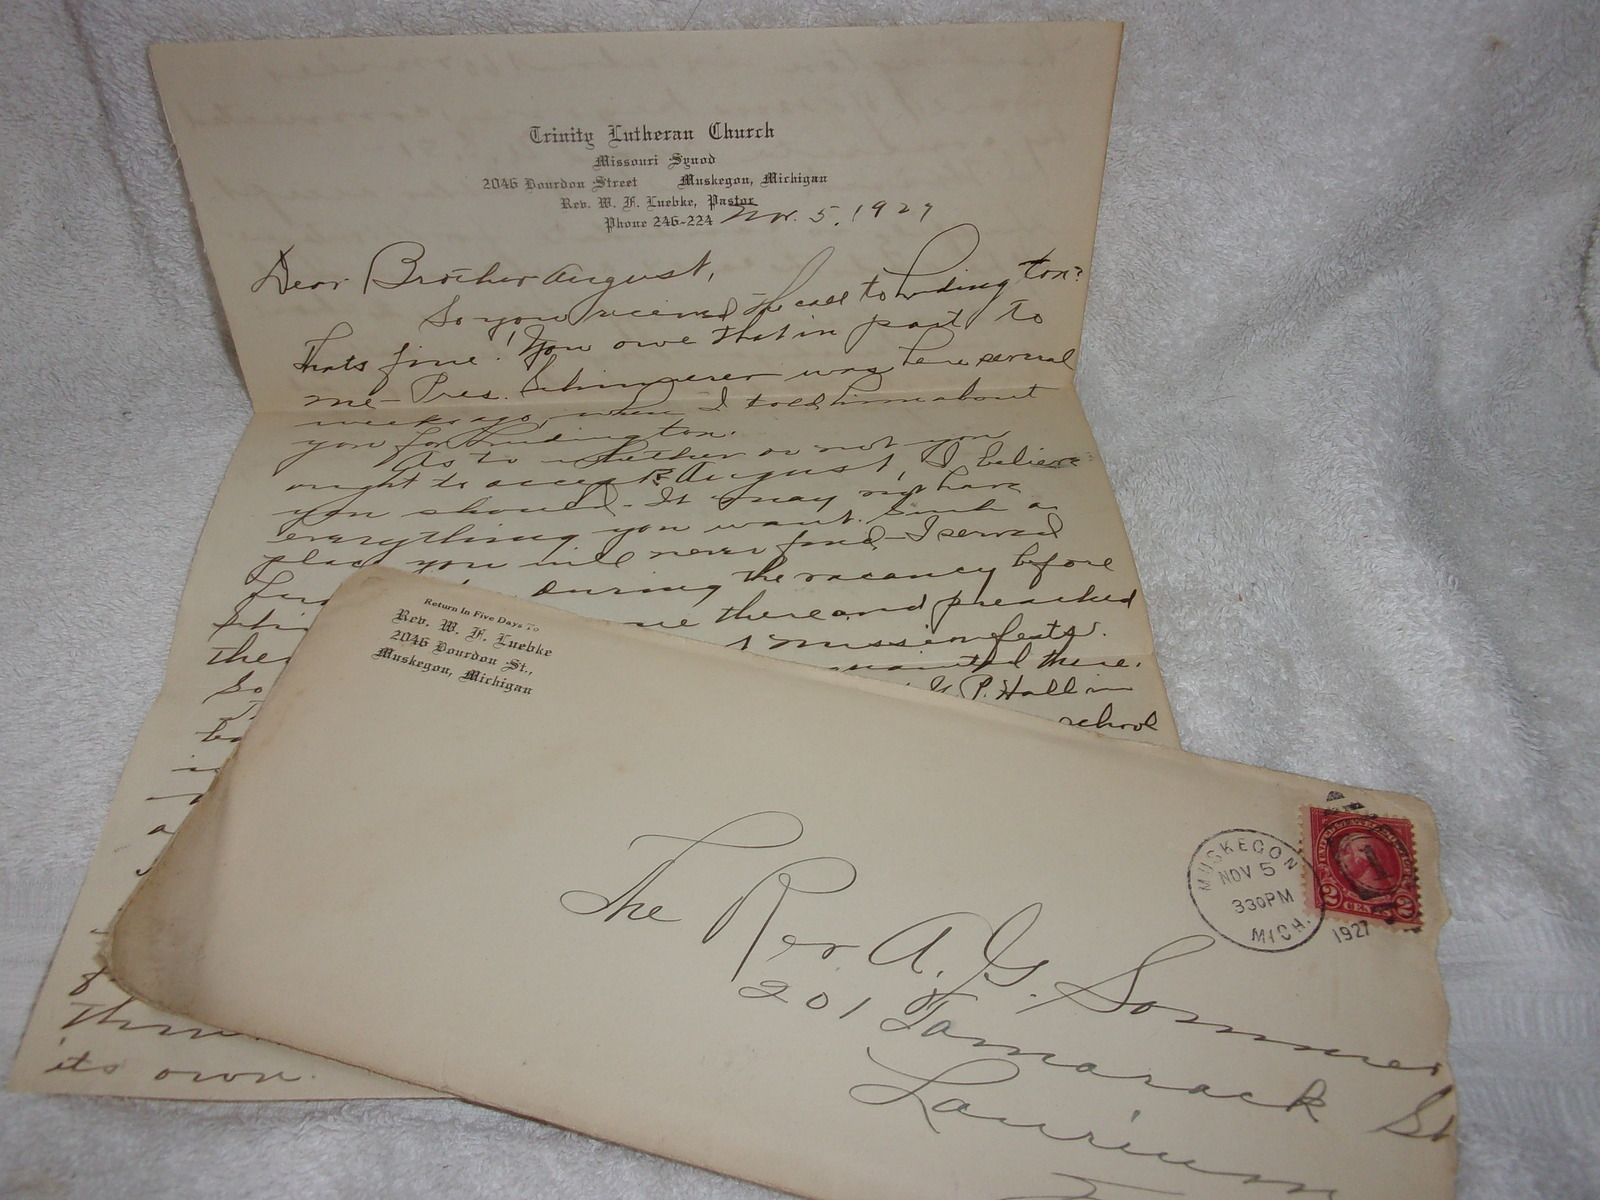 Trinity Lutheran Church
Missouri Synod
2046 Dourdon Street Muskegon, Michigan
Rev. W. F. Luebke, Pastor
Phone 246-224 Nov. 5, 1927
Dear Brother August,
So you received the call to Ludington?
Thats fine! You owe that in part to
me - Pres. was here several
weeks ago, when I told him about
you for Ludington.
As to whether or not you
ought to accept, August, I believe
you should. It may not have
everything you want. Such a
place you will never find. I served
during the vacancy before
there and preached
mission fests.
the acquainted there.
So P. Hall in
school
its own.
Return In Five Days To
Rev. W. F. Luebke
2046 Dourdon St.,
Muskegon, Michigan
MUSKEGON
NOV 5
330PM
MICH.
1927
UNITED STATES POSTAGE
2 CENTS 2
The Rev A. G. Sommer
201 Tamarack St
Laurium